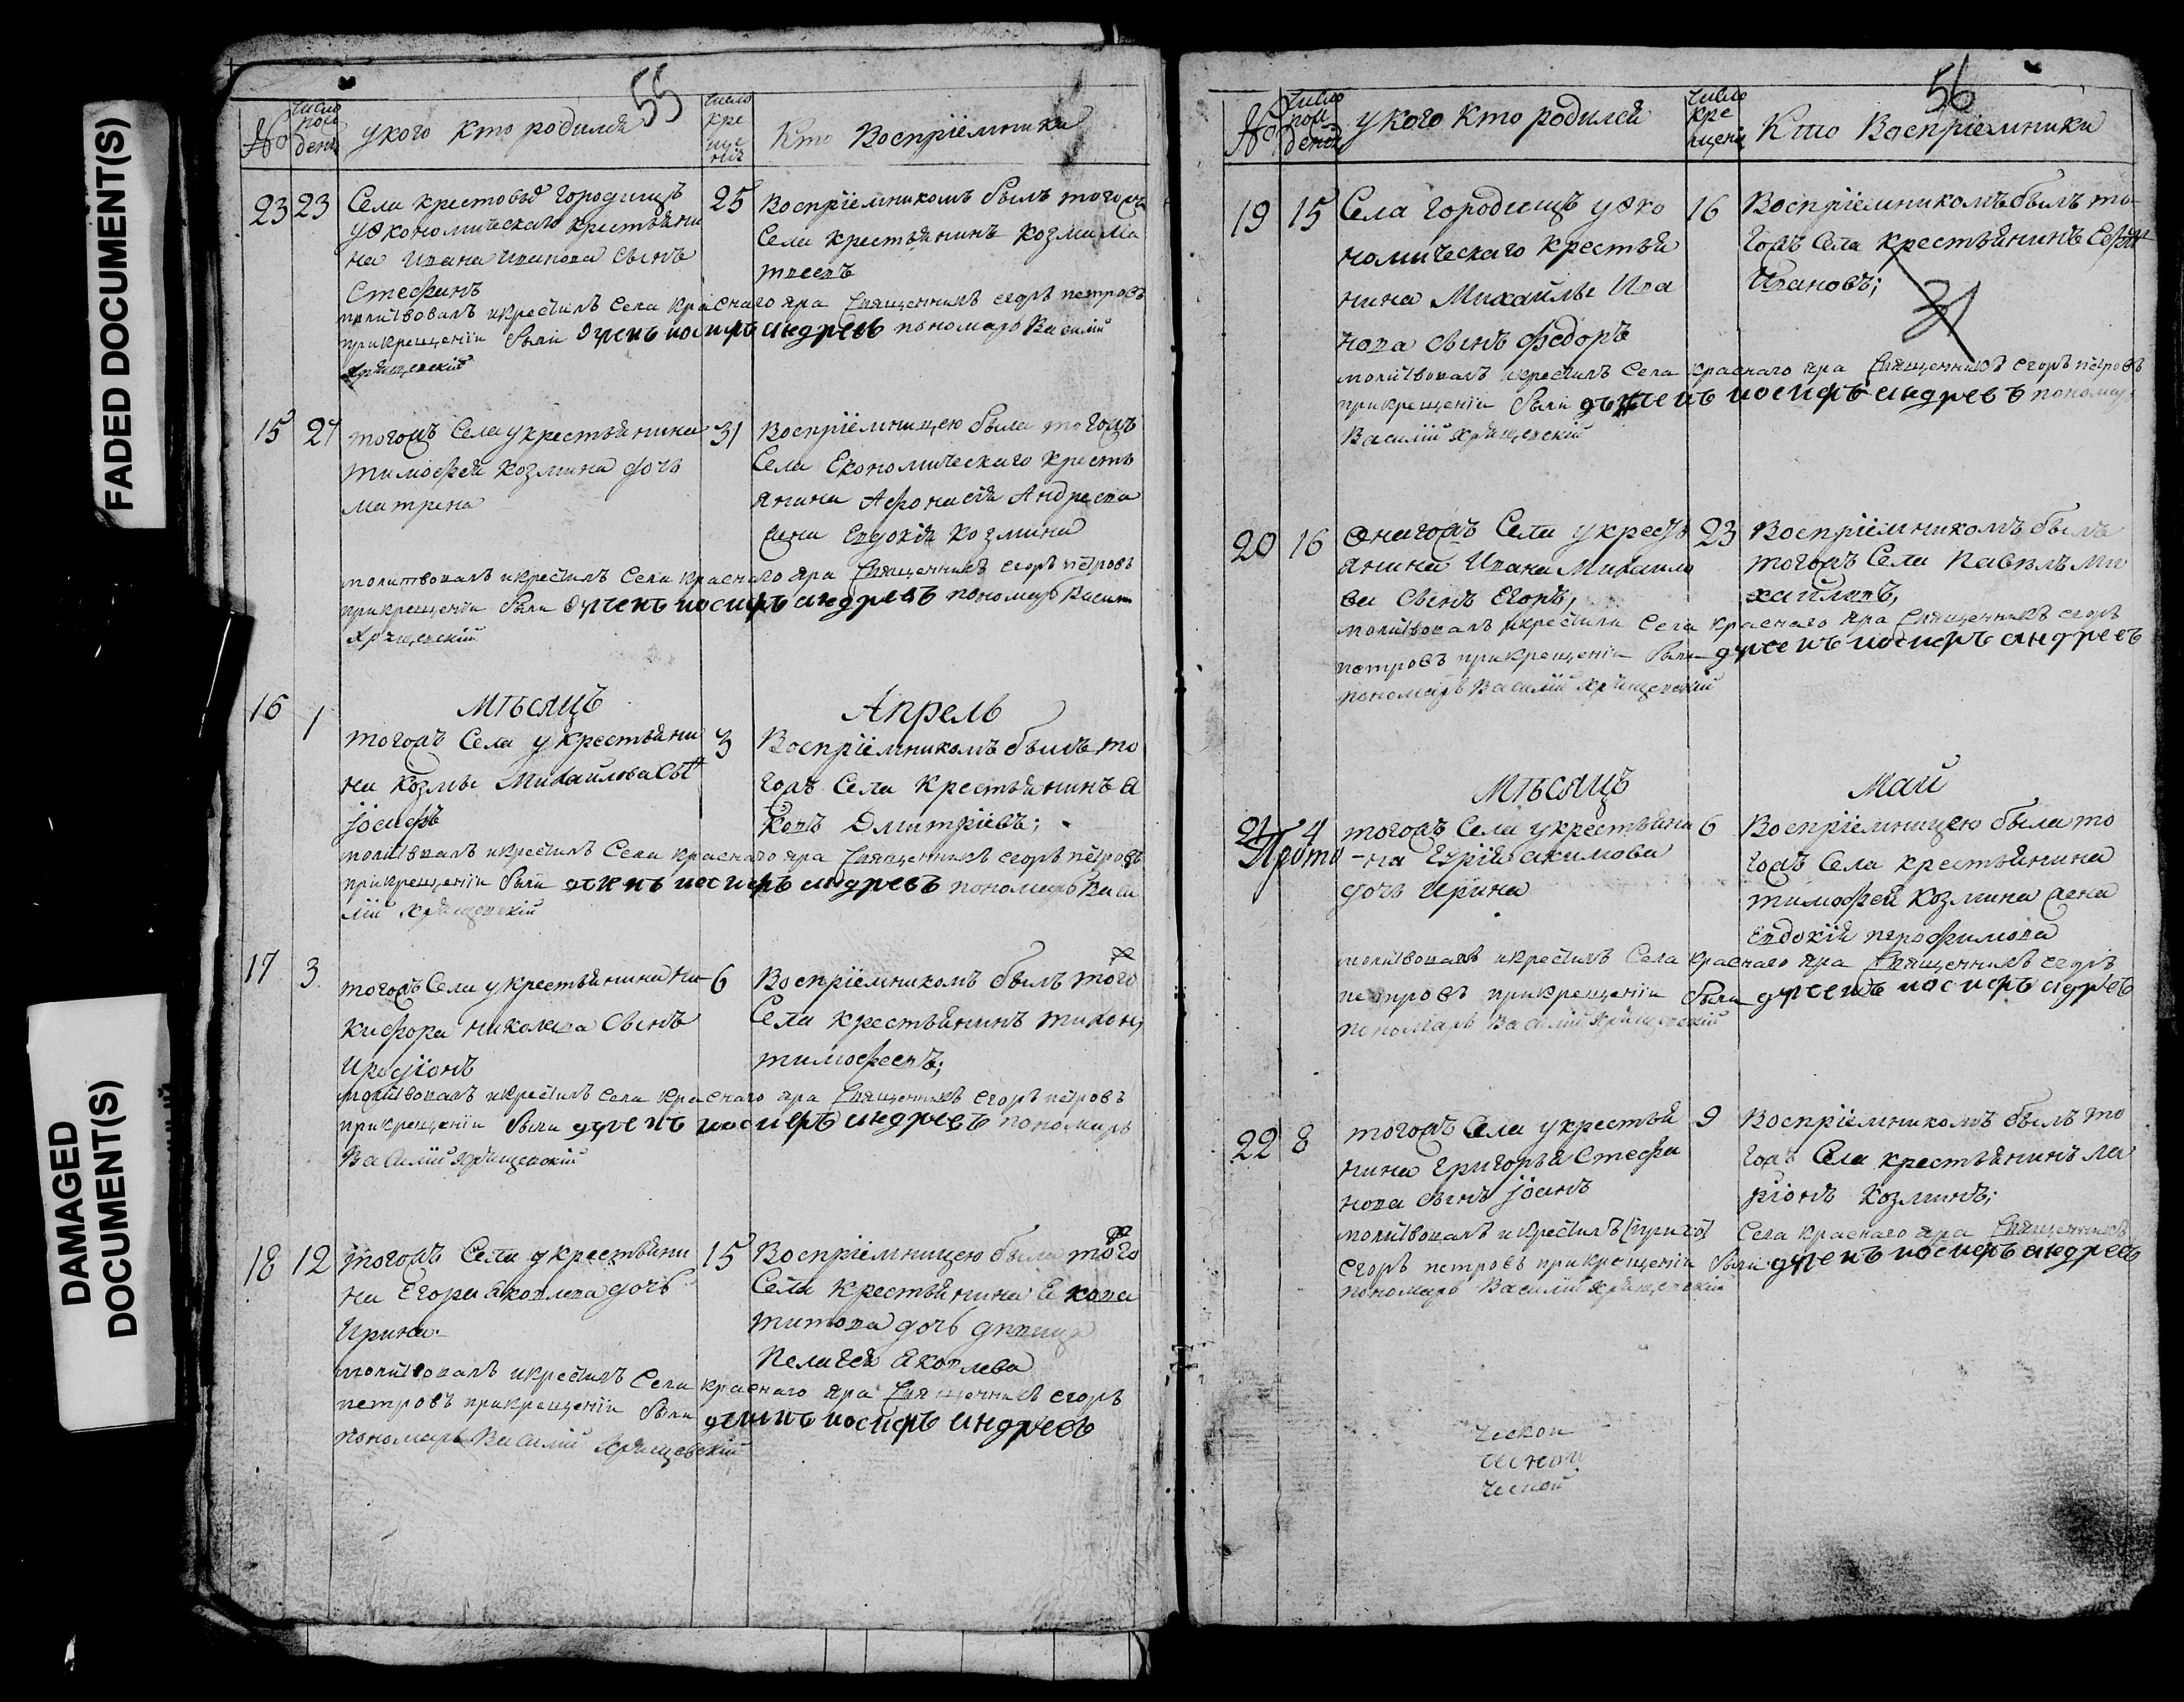 FADED DOCUMENT(S)
DAMAGED
DOCUMENT(S)
55
№
число
рож
дені
у кого кто родился
число
кре
ще
ніѧ
Кто Воспріемники
23 23 Села крестовыхъ городищъ
у экономическаго крестьяни
на Ивана Иванова сынъ
Стефанъ
25 Воспріемникомъ былъ тогожъ
Села крестьянинъ Козма Ма
твеевъ
молитвовалъ и крестилъ Села Краснаго яра Священникъ егоръ петровъ
при крещеніи были дьячекъ иосифъ андреевъ пономарь Василій
Хрящевскій
15 27 тогожъ Села у крестьянина
тимофея Козмина дочь
матрена
31 Воспріемницею была тогожъ
Села Економическаго кресть
янина Афонасія Андреева
жена Евдокія Козмина
молитвовалъ и крестилъ Села Краснаго яра Священникъ егоръ петровъ
при крещеніи были дьячекъ иосифъ андреевъ пономарь Васил
Хрящевскій
Мѣсяцъ Апрель
16 1 тогожъ Села у крестьяни
на Козмы Михайлова сы
Іосифъ
3 Воспріемникомъ былъ то
гожъ Села крестьянинъ Я
ковъ Дмитріевъ;
молитвовалъ и крестилъ Села Краснаго яра Священникъ егоръ петровъ
при крещеніи были дьячекъ иосифъ андреевъ пономарь Васи
лій Хрящевскій
17 3 тогожъ Села у крестьянина Ни
кифора Николаева сынъ
Иродіонъ
6 Воспріемникомъ былъ того ж
Села крестьянинъ тихонъ
тимофеевъ;
молитвовалъ и крестилъ Села Краснаго яра Священникъ егоръ петровъ
при крещеніи были дьячекъ иосифъ андреевъ пономарь
Василій Хрящевскій
18 12 тогожъ Села у крестьяни
на Егора Яковлева дочь
Ирина.
15 Воспріемницею была того ж
Села крестьянина Якова
титова дочь девица
Пелагея Яковлева
молитвовалъ и крестилъ Села Краснаго яра Священникъ егоръ
петровъ при крещеніи были дьячекъ иосифъ андреевъ
пономарь Василій Хрящевскій
56
№
число
рож
дені
у кого кто родился
число
кре
щені
Кто Воспріемники
19 15 Села Городищъ у эко
номическаго крестья
нина Михайлы Ива
нова сынъ Федоръ
16 Воспріемникомъ былъ то
гожъ Села крестьянинъ
Ивановъ;
31
молитвовалъ и крестилъ Села Краснаго яра Священникъ егоръ петровъ
при крещеніи были дьячекъ иосифъ андреевъ пономар
Василій Хрящевскій
20 16 Онагожъ Села у кресть
янина Ивана Михаило
ва сынъ Егоръ,
23 Воспріемникомъ былъ
тогожъ Села Павелъ Ми
хайловъ,
молитвовалъ и крестилъ Села Краснаго яра Священникъ егоръ
петровъ при крещеніи были дьячекъ иосифъ андреевъ
пономарь Василій Хрящевскій
Мѣсяцъ Май
21 4 тогожъ Села у крестьяни
на Гурія Акимова
дочь Ирина
6 Воспріемницею была то
гожъ Села крестьянина
тимофея Козмина жена
Евдокія парфимова
молитвовалъ и крестилъ Села Краснаго яра Священникъ егоръ
петровъ при крещеніи были дьячекъ иосифъ адревъ
пономарь Василій Хрящевскій
22 8 тогожъ Села у крестья
нина Григорья Стефа
нова сынъ Іоанъ
9 Воспріемникомъ былъ то
гожъ Села крестьянинъ Ла
ріонъ Козминъ;
молитвовалъ и крестилъ Села Краснаго яра Священникъ
егоръ петровъ при крещеніи были дьячекъ иосифъ андреевъ
пономарь Василій Хрящевскій